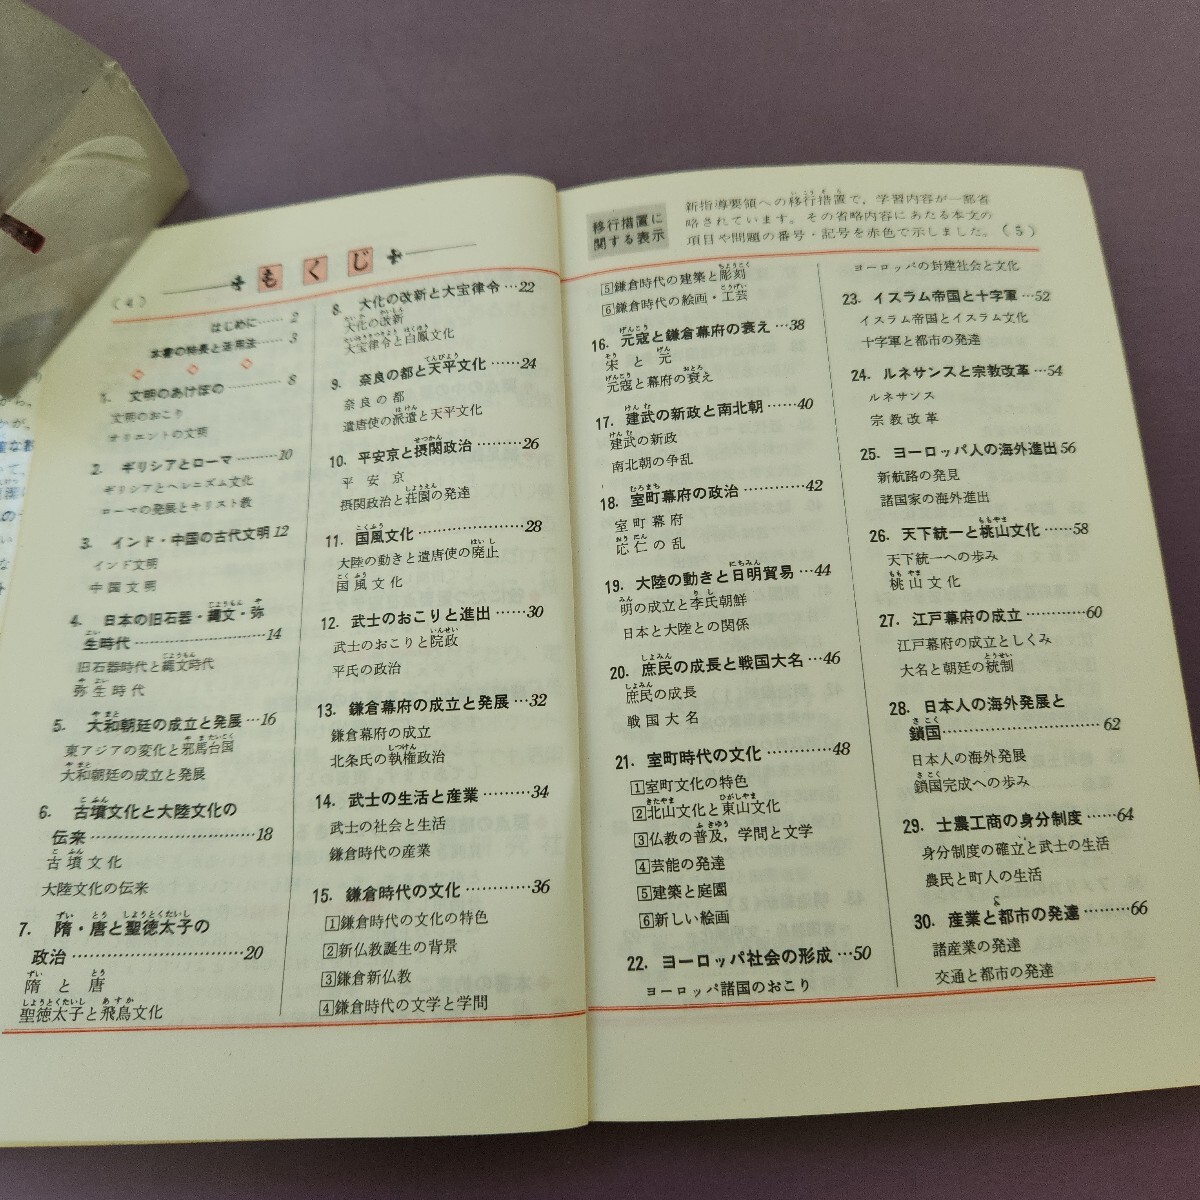 （4）
もくじ
はじめに…… 2
本書の特長と活用法…… 3
1. 文明のあけぼの………… 8
文明のおこり
オリエントの文明
2. ギリシアとローマ………10
ギリシアとヘレニズム文化
ローマの発展とキリスト教
3. インド・中国の古代文明 12
インド文明
中国文明
4. 日本の旧石器・縄文・弥
生時代………………14
旧石器時代と縄文時代
弥生時代
5. 大和朝廷の成立と発展…16
東アジアの変化と邪馬台国
大和朝廷の成立と発展
6. 古墳文化と大陸文化の
伝来…………………18
古墳文化
大陸文化の伝来
7. 隋・唐と聖徳太子の
政治…………………20
隋と唐
聖徳太子と飛鳥文化
8. 大化の改新と大宝律令…22
大化の改新
大宝律令と白鳳文化
9. 奈良の都と天平文化……24
奈良の都
遣唐使の派遣と天平文化
10. 平安京と摂関政治………26
平安京
摂関政治と荘園の発達
11. 国風文化…………………28
大陸の動きと遣唐使の廃止
国風文化
12. 武士のおこりと進出……30
武士のおこりと院政
平氏の政治
13. 鎌倉幕府の成立と発展…32
鎌倉幕府の成立
北条氏の執権政治
14. 武士の生活と産業………34
武士の社会と生活
鎌倉時代の産業
15. 鎌倉時代の文化…………36
1鎌倉時代の文化の特色
2新仏教誕生の背景
3鎌倉新仏教
4鎌倉時代の文学と学問
移行措置に
関する表示
新指導要領への移行措置で，学習内容が一部省
略されています。その省略内容にあたる本文の
項目や問題の番号・記号を赤色で示しました。（5）
5鎌倉時代の建築と彫刻
6鎌倉時代の絵画・工芸
16. 元寇と鎌倉幕府の衰え…38
宋と元
元寇と幕府の衰え
17. 建武の新政と南北朝……40
建武の新政
南北朝の争乱
18. 室町幕府の政治…………42
室町幕府
応仁の乱
19. 大陸の動きと日明貿易…44
明の成立と李氏朝鮮
日本と大陸との関係
20. 庶民の成長と戦国大名…46
庶民の成長
戦国大名
21. 室町時代の文化…………48
1室町文化の特色
2北山文化と東山文化
3仏教の普及，学問と文学
4芸能の発達
5建築と庭園
6新しい絵画
22. ヨーロッパ社会の形成…50
ヨーロッパ諸国のおこり
ヨーロッパの封建社会と文化
23. イスラム帝国と十字軍…52
イスラム帝国とイスラム文化
十字軍と都市の発達
24. ルネサンスと宗教改革…54
ルネサンス
宗教改革
25. ヨーロッパ人の海外進出 56
新航路の発見
諸国家の海外進出
26. 天下統一と桃山文化……58
天下統一への歩み
桃山文化
27. 江戸幕府の成立…………60
江戸幕府の成立としくみ
大名と朝廷の統制
28. 日本人の海外発展と
鎖国…………………62
日本人の海外発展
鎖国完成への歩み
29. 士農工商の身分制度……64
身分制度の確立と武士の生活
農民と町人の生活
30. 産業と都市の発達………66
諸産業の発達
交通と都市の発達